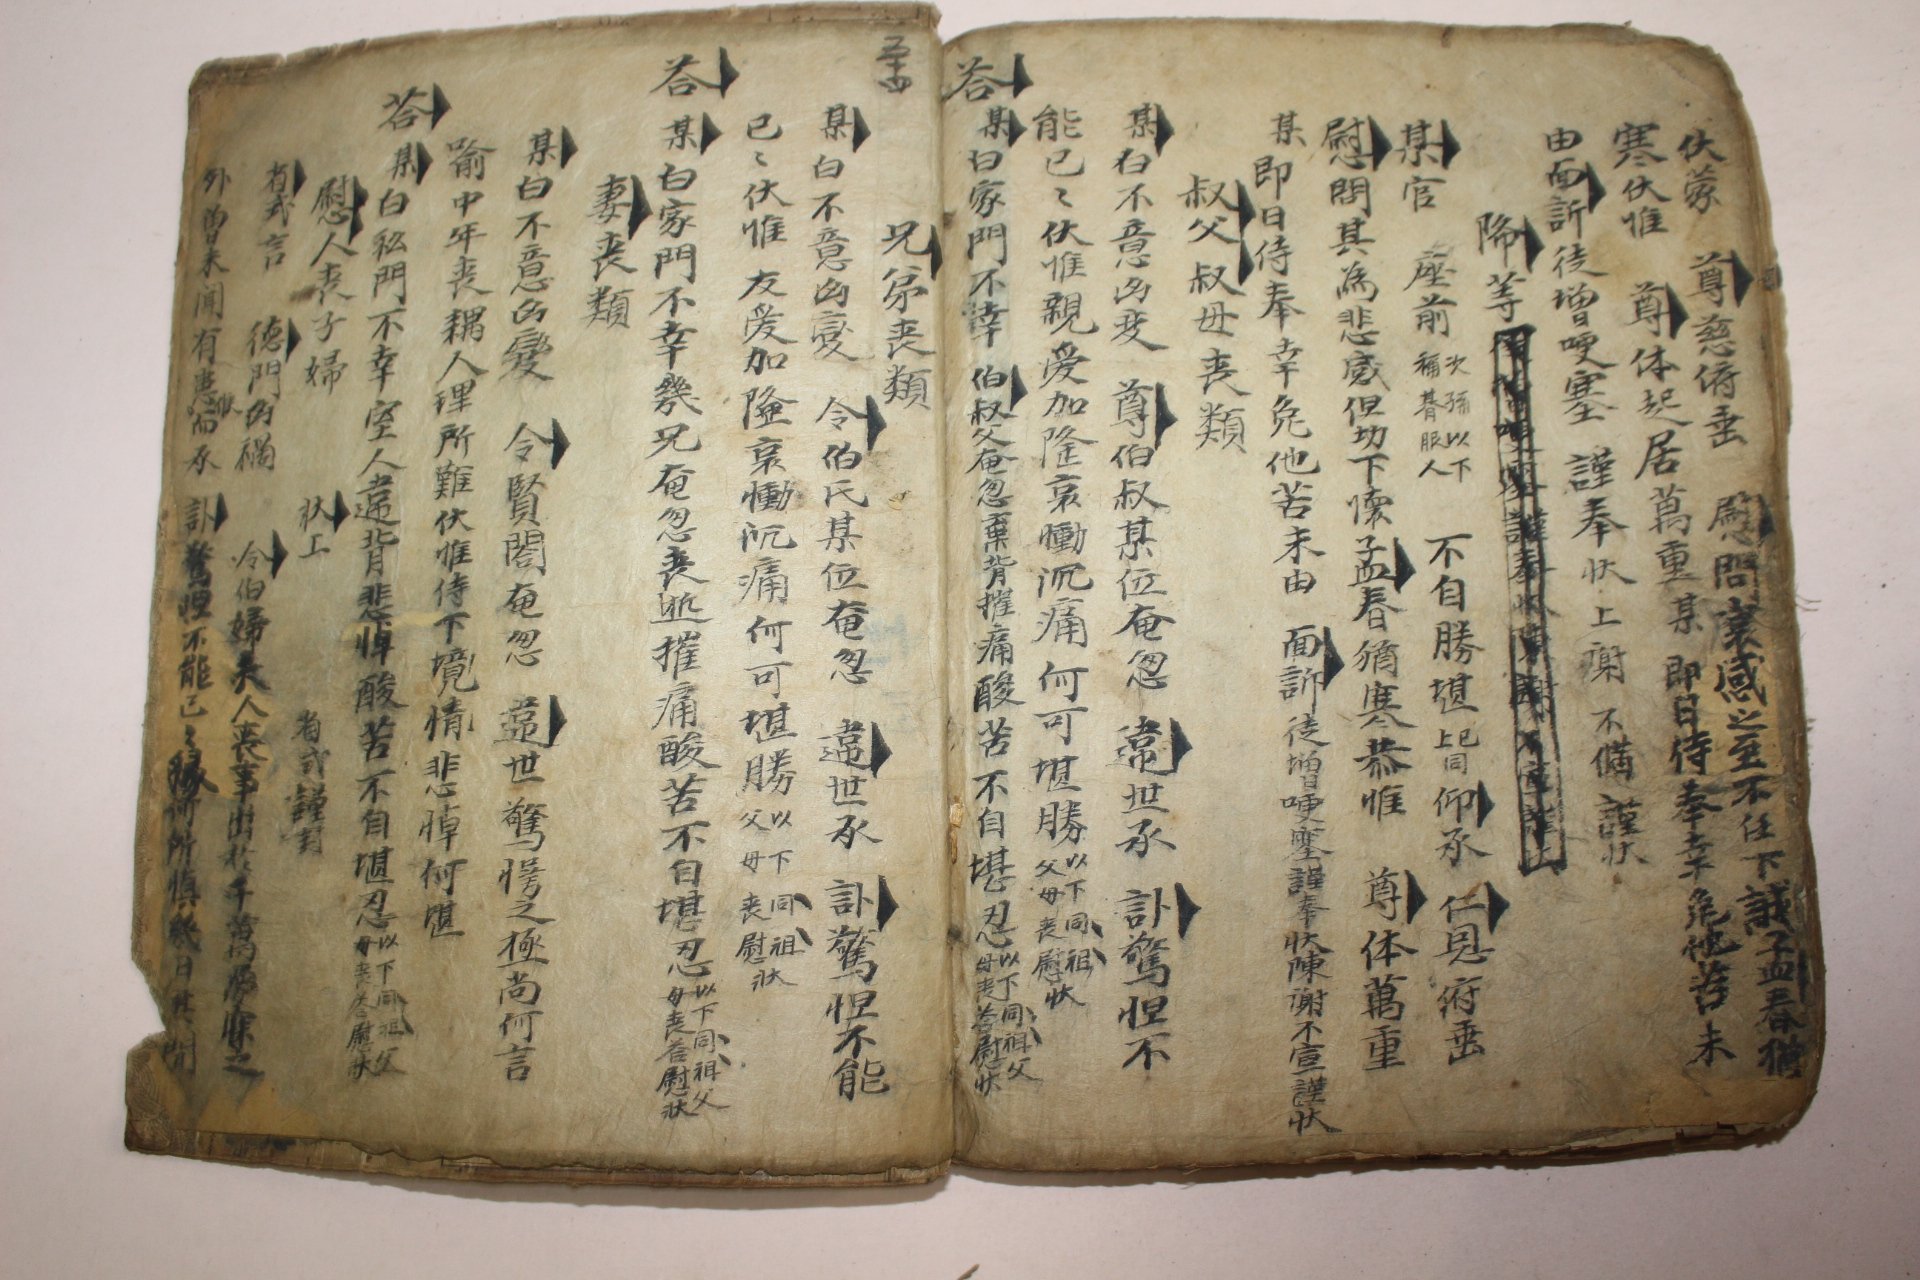 伏蒙 尊慈俯垂 慰問哀感之至不任下誠孟春猶
寒伏惟 尊体起居萬重某即日侍奉幸免他苦未
由面訴徒增哽塞 謹奉狀上謝 不備 謹狀
降等
某官 座前 次孫以下稱朞服人 不自勝堪 上已同 仰承 仁恩俯垂
慰問其為悲感但切下懷孟春猶寒恭惟 尊体萬重
某即日侍奉幸免他苦未由 面訴徒增哽塞謹奉狀陳謝不宣謹狀
叔父叔母喪類
某白不意凶变 尊伯叔某位奄忽 違世承 訃驚怛不
能已〻伏惟親愛加隆哀慟沉痛何可堪勝 以下同祖父母喪慰狀
答
某白家門不幸 伯叔父奄忽棄背摧痛酸苦不自堪忍 以下同祖父母喪答慰狀
五十四
兄弟喪類
某白不意凶變 令伯氏某位奄忽 違世承 訃驚怛不能
已〻伏惟 友愛加隆哀慟沉痛何可堪勝 以下同祖父母喪慰狀
答
某白家門不幸幾兄奄忽喪逝摧痛酸苦不自堪忍 以下同祖父母喪答慰狀
妻喪類
某白不意凶變 令賢閤奄忽 違世驚愕之極尚何言
喻中年喪耦人理所難伏惟侍下境情悲悼何堪
答
某白私門不幸室人違背悲悼酸苦不自堪忍 以下同祖父母喪答慰狀
慰人喪子婦 狀上 省式謹封
省式言 德門凶禍 令伯婦夫人喪事出於千萬
外曾未聞有患 而承 訃驚怛不能已〻